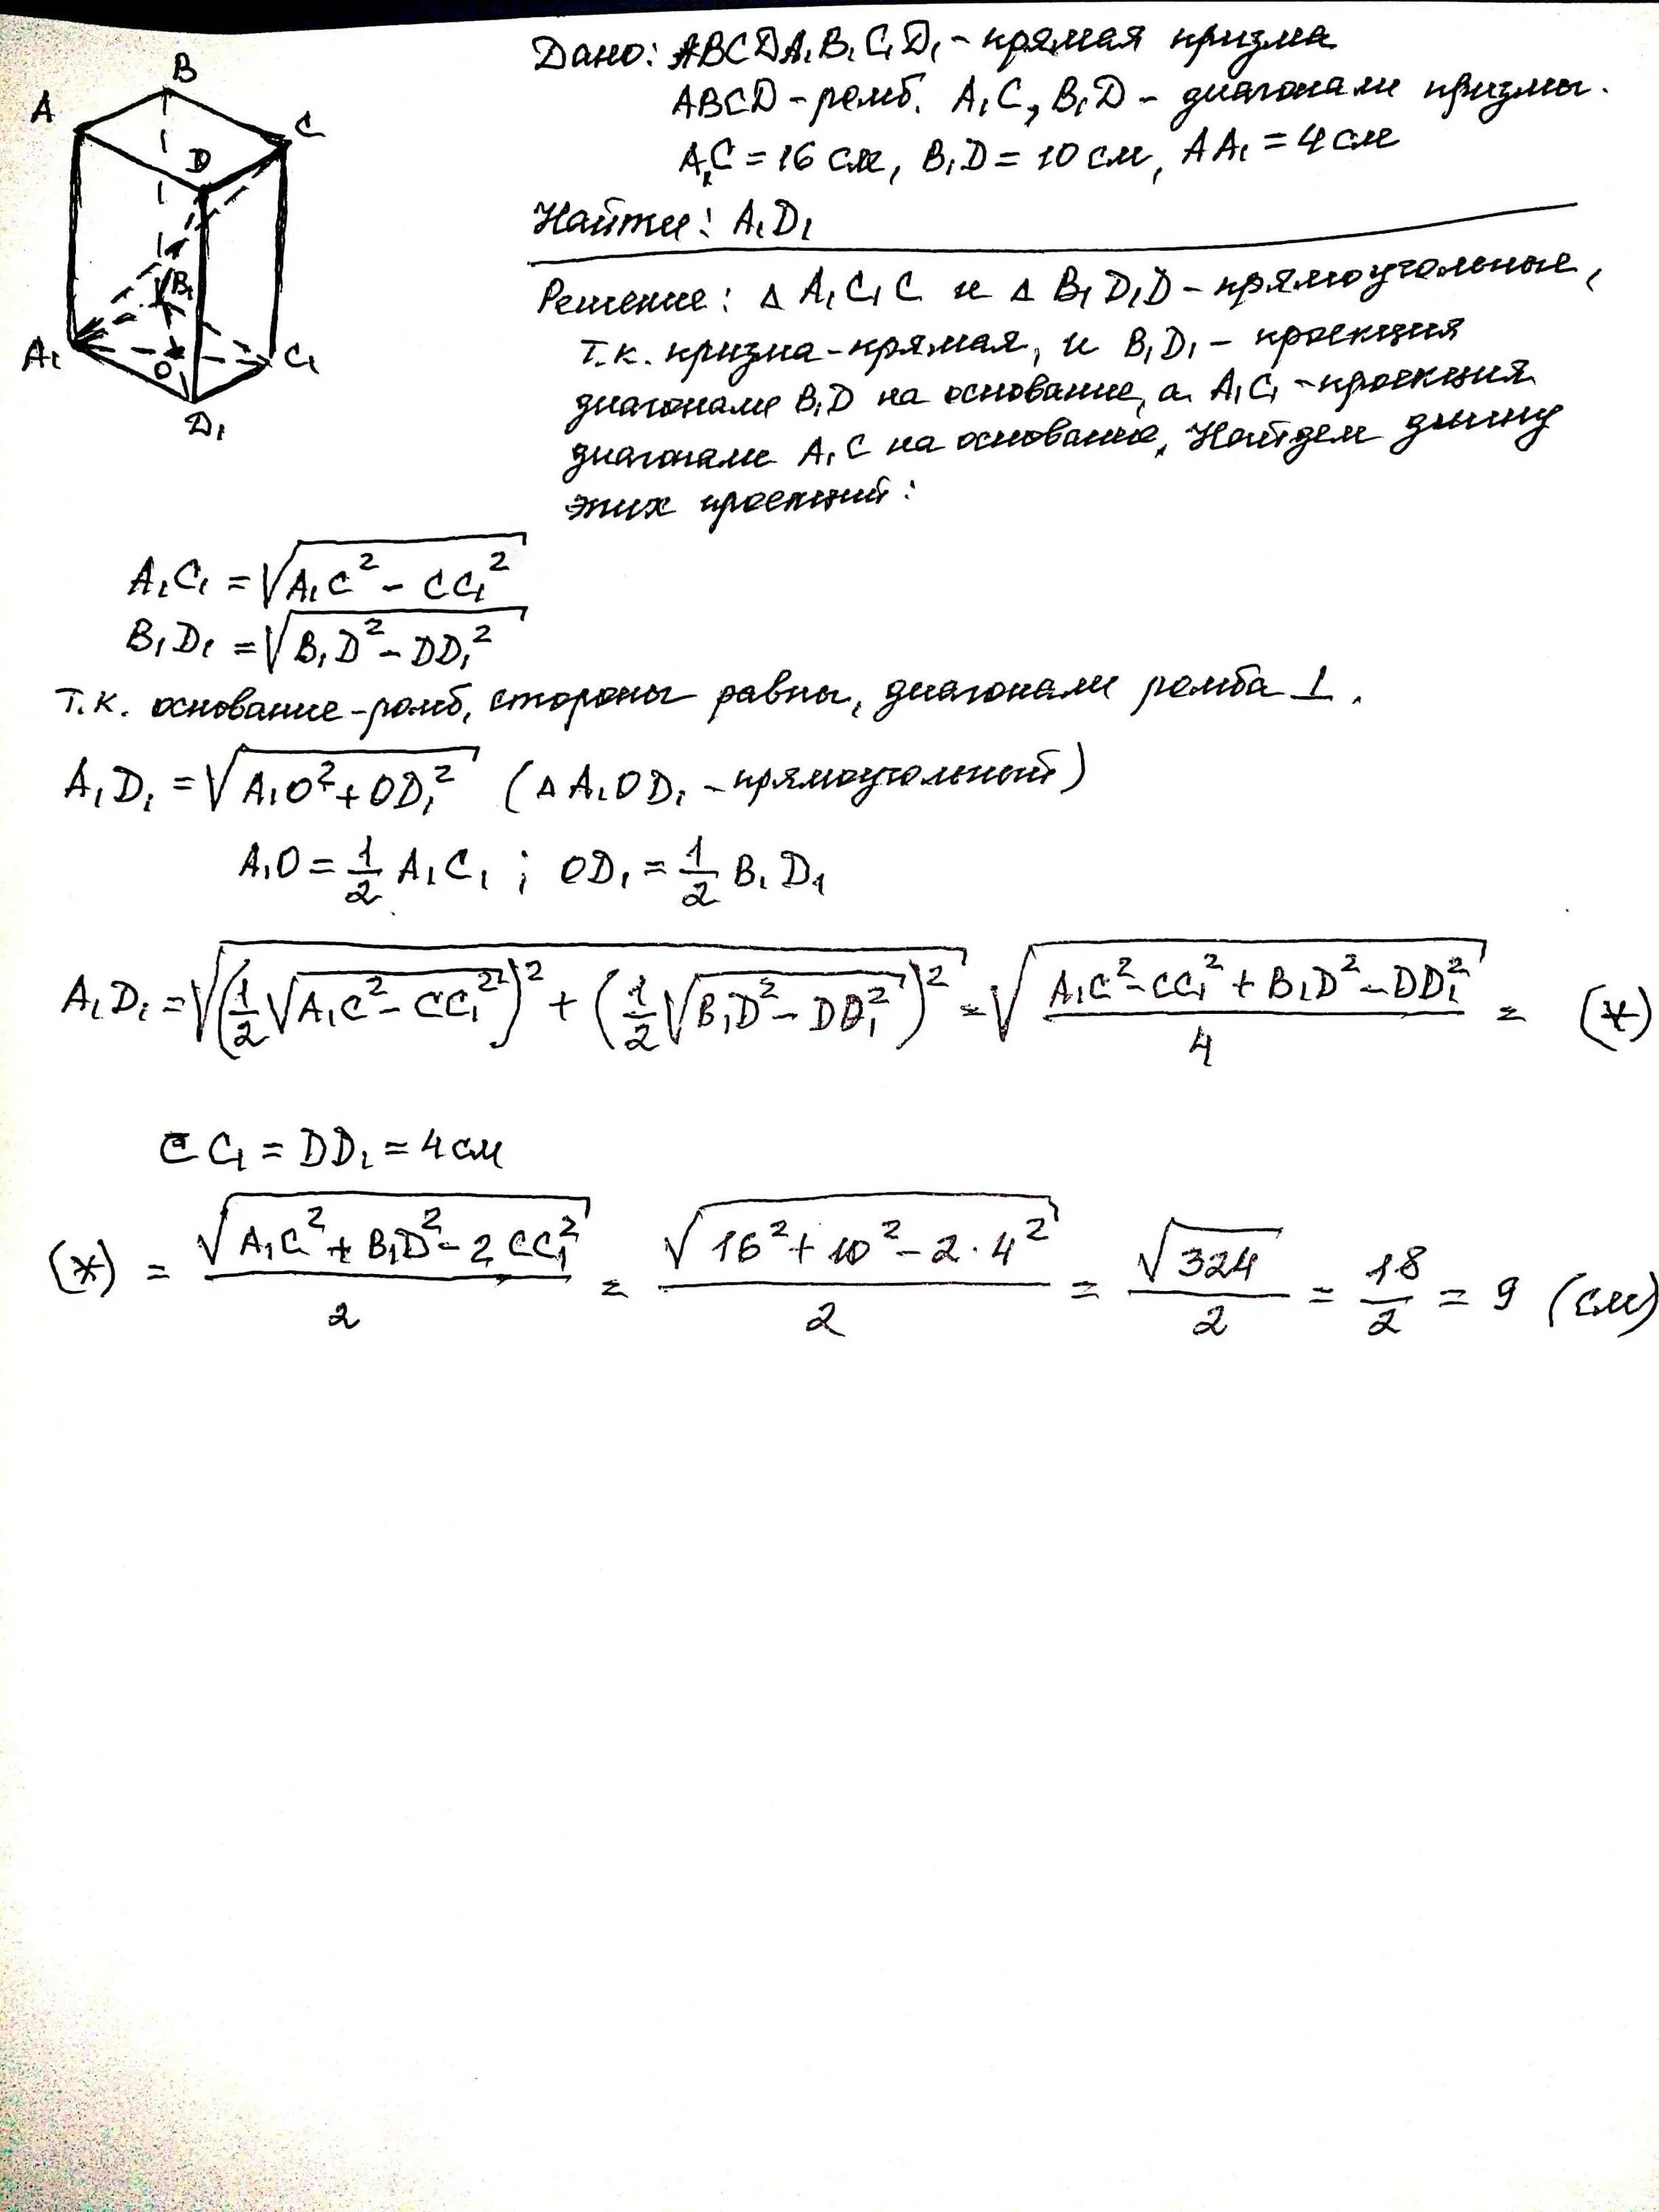 B
A
C
D
B₁
A₁
O
C₁
D₁
Дано: ABCDA₁B₁C₁D₁ - прямая призма
ABCD - ромб. A₁C, B₁D - диагонали призмы.
A₁C = 16 см, B₁D = 10 см, AA₁ = 4 см
Найти: A₁D₁
Решение: △ A₁C₁C и △ B₁D₁D - прямоугольные,
т.к. призма - прямая, и B₁D₁ - проекция
диагонали B₁D на основание, а A₁C₁ - проекция
диагонали A₁C на основание. Найдем длину
этих проекций:
A₁C₁ = √(A₁C² - CC₁²)
B₁D₁ = √(B₁D² - DD₁²)
Т.к. основание - ромб, стороны равны, диагонали ромба ⊥.
A₁D₁ = √(A₁O² + OD₁²) (△ A₁OD₁ - прямоугольный)
A₁O = 1/2 A₁C₁ ; OD₁ = 1/2 B₁D₁
A₁D₁ = √((1/2 √(A₁C² - CC₁²))² + (1/2 √(B₁D² - DD₁²))²) = √((A₁C² - CC₁² + B₁D² - DD₁²)/4) = (*)
CC₁ = DD₁ = 4 см
(*) = √(A₁C² + B₁D² - 2CC₁²)/2 = √(16² + 10² - 2·4²)/2 = √324/2 = 18/2 = 9 (см)